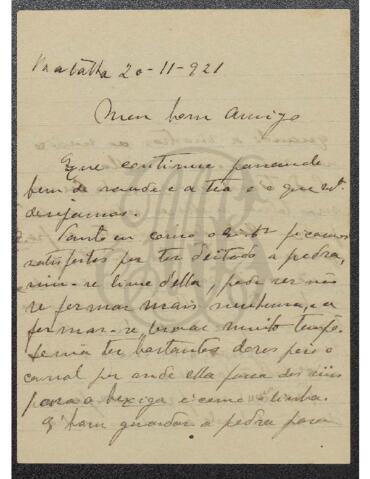 Batalha 20-11-921
Meu bom Amigo
Que continue passando
bem de saude e a tia é o que nós
desejamos.
Tanto eu como o ficamos
satisfeitos por ter deitado a pedra,
viu-se livre della, pode ser não
se formar mais nenhuma, e a
formar-se, levar muito tempo.
Devia ter bastantes dores pois o
canal por onde ella passa dos rins
para a bexiga é como linha.
É bom guardar a pedra para